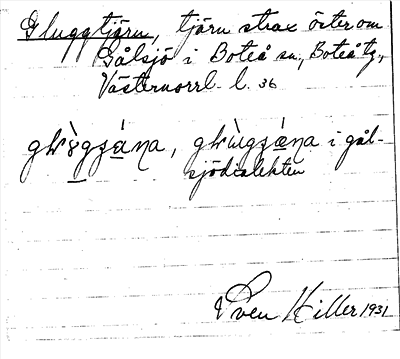 Gluggtjärn, tjärn strax öster om
Gålsjö i Boteå sn, Boteå tg,
Västernorrl. l. 36
i gål-
sjödialekten
Sven Hiller 1931